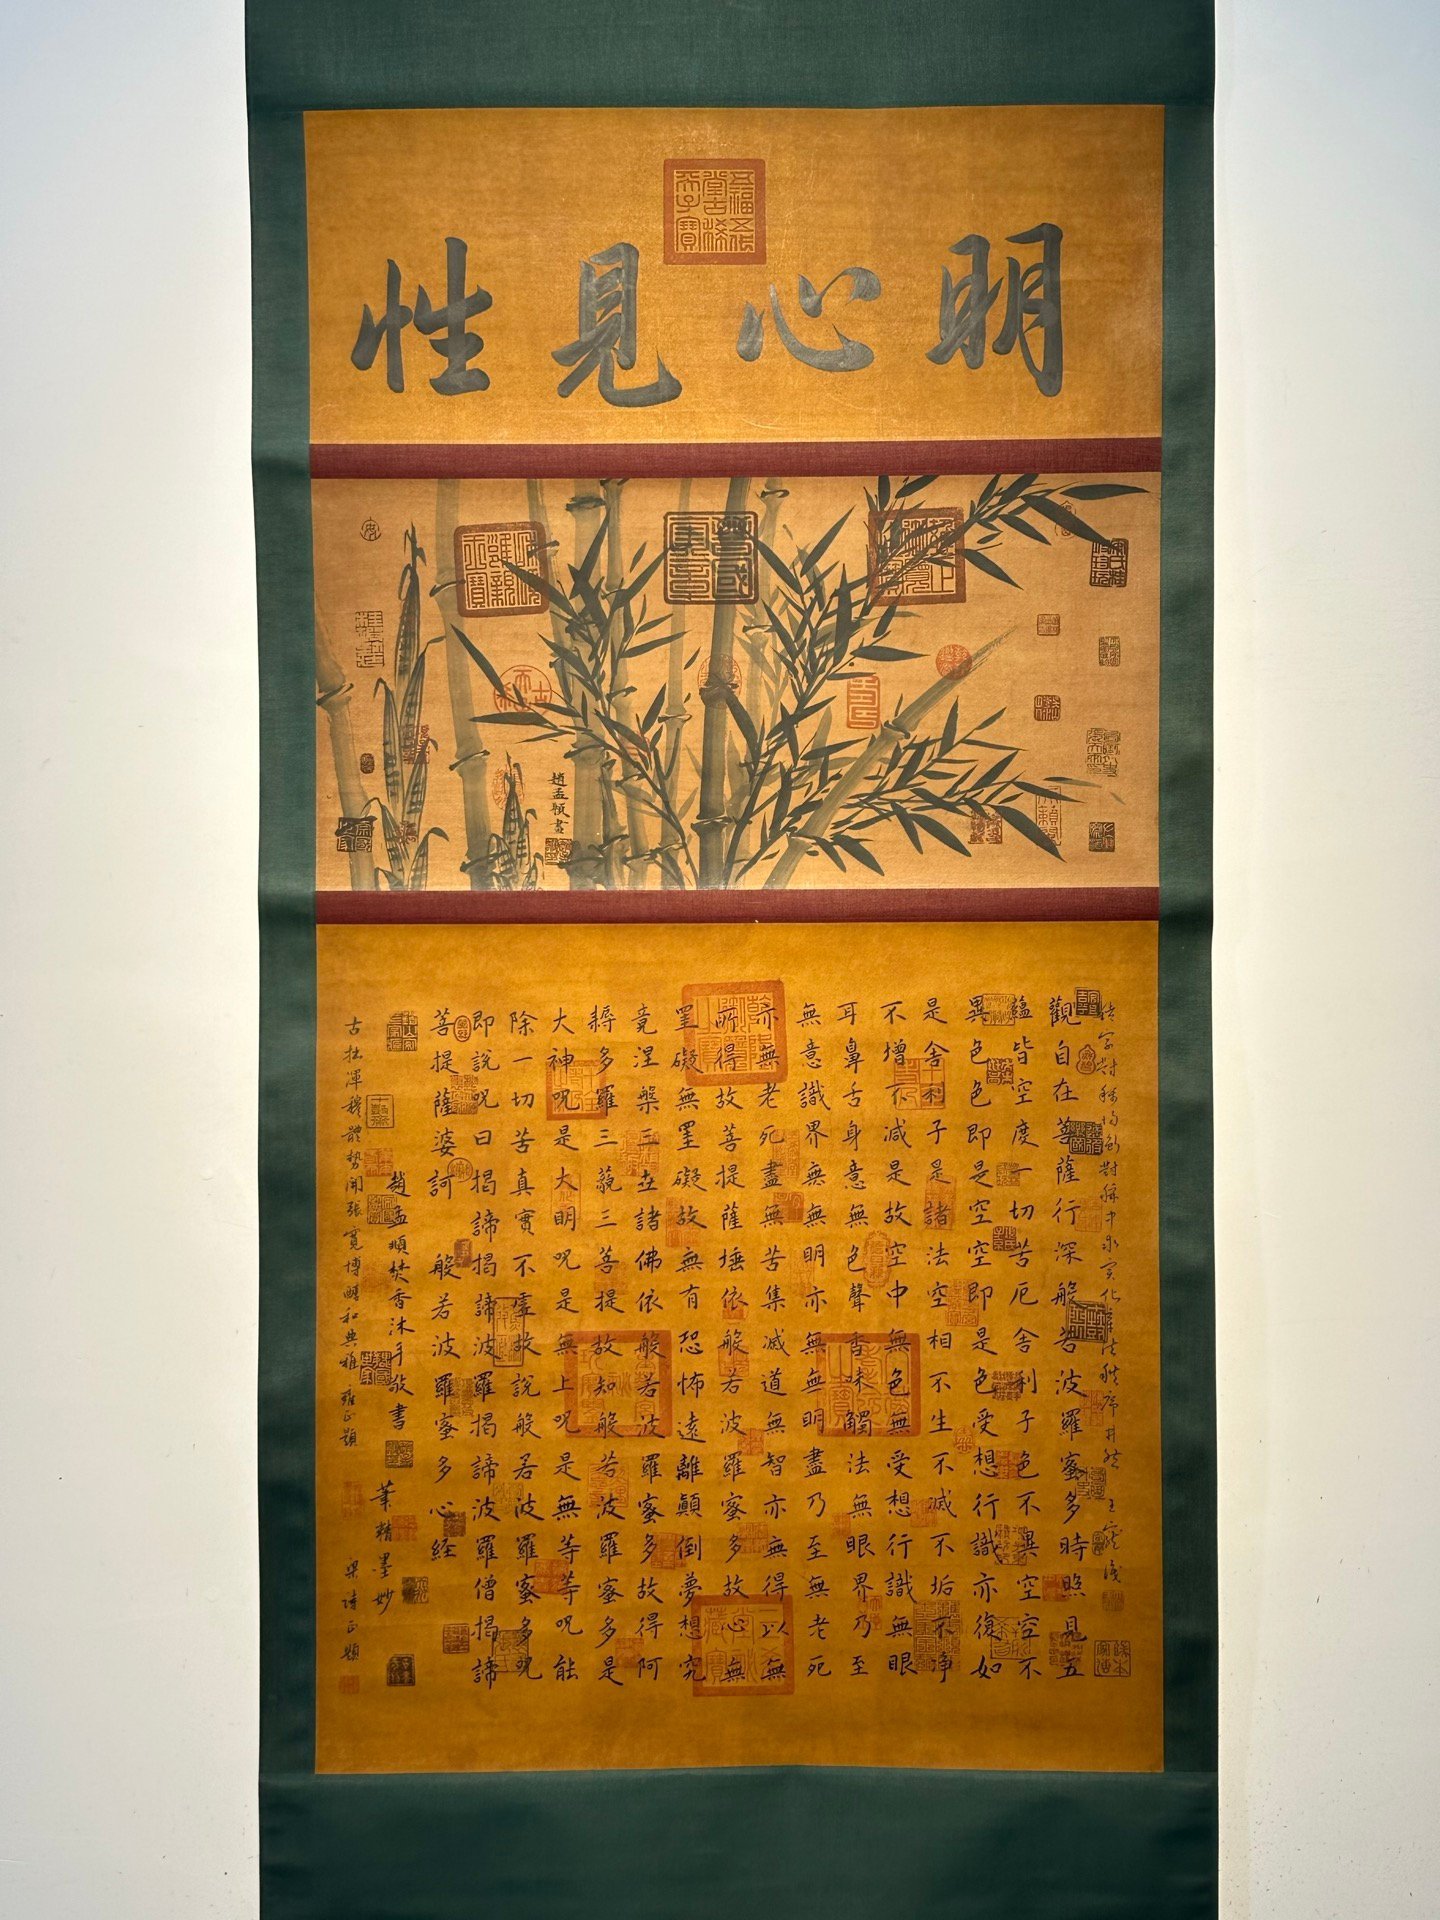 明心見性
趙孟頫畫
結字對稱均衡對稱中求變化章法秩序井然 王寵識
觀自在菩薩行深般若波羅蜜多時照見五
蘊皆空度一切苦厄舍利子色不異空空不
異色色即是空空即是色受想行識亦復如
是舍利子是諸法空相不生不滅不垢不净
不增不減是故空中無色無受想行識無眼
耳鼻舌身意無色聲香味觸法無眼界乃至
無意識界無無明亦無無明盡乃至無老死
亦無老死盡無苦集滅道無智亦無得以無
所得故菩提薩埵依般若波羅蜜多故心無
罣礙無罣礙故無有恐怖遠離顛倒夢想究
竟涅槃三世諸佛依般若波羅蜜多故得阿
耨多羅三藐三菩提故知般若波羅蜜多是
大神呪是大明呪是無上呪是無等等呪能
除一切苦真實不虛故說般若波羅蜜多呪
即說呪曰揭諦揭諦波羅揭諦波羅僧揭諦
菩提薩婆訶 般若波羅蜜多心経
趙孟頫焚香沐手敬書 筆精墨妙
古拙渾穆體勢開張寬博醇和典雅 雍正題 梁詩正題